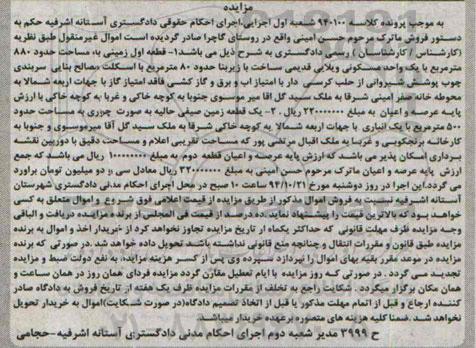 مزایده
به موجب پرونده کلاسه ۹۴۰۱۰۰ شعبه اول اجرایی،اجرای احکام حقوقی دادگستری آستانه اشرفیه حکم به
دستور فروش ماترک مرحوم حسن امینی واقع در روستای گاچرا صادر گردیده است اموال غیرمنقول طبق نظریه
(کارشناس / کارشناسان ) رسمی دادگستری به شرح ذیل می باشد۱- قطعه اول زمینی به، مساحت حدود ۸۸۰
مترمربع با یک واحد مسکونی ویلایی قدیمی ساخت با زیربنا حدود ۸۰ مترمربع با اسکلت مصالح بنایی سربندی
چوب پوشش شیروانی از حلب کرسی دار با امتیاز آب و برق و گاز کشی فاقد امتیاز گاز با جهات اربعه شمالا به
محوطه خانه صفر امینی شرقا به ملک سید گل آقا میر موسوی جنوبا به کوچه خاکی و غربا به کوچه خاکی با ارزش
پایه عرصه و اعیان به مبلغ ۲۲۰۰۰۰۰۰۰ ریال. ۲- یک قطعه زمین صیفی حالیه به صورت چپری به مساحت حدود
۵۰۰ مترمربع با یک انباری با جهات اربعه شمالا به کوچه خاکی شرقا به ملک سید گل آقا میرموسوی و جنوبا به
کارخانه برنجکوبی و غربا به ملک اقبال مرتضی پور که مساحت تقریبی اعلام و مساحت دقیق با دوربین نقشه
برداری امکان پذیر می باشد که ارزش پایه عرصه و اعیان قطعه دوم به مبلغ ۱۰۰۰۰۰۰۰۰ ریال می باشد که جمع
ارزش پایه عرصه و اعیان ماترک مرحوم حسن امینی به مبلغ ۳۲۰۰۰۰۰۰۰ ریال معادل سی و دو میلیون تومان برآورد
می گردد.این اجرا در روز دوشنبه مورخ ۹۴/۱۰/۲۱ ساعت ۱۰ صبح در محل اجرای احکام مدنی دادگستری شهرستان
آستانه اشرفیه نسبت به فروش اموال مذکور از طریق مزایده از قیمت اعلامی فوق شروع و اموال متعلق به کسی
خواهد بود که بالاترین قیمت را پیشنهاد نماید. ده درصد از قیمت فی المجلس از برنده مزایده دریافت و الباقی
وجه مزایده ظرف مهلت قانونی که حداکثر یکماه از تاریخ مزایده تجاوز نخواهد کرد از خریدار اخذ و اموال به برنده
مزایده طبق قانون و مقررات انتقال و چنانچه منع قانونی نداشته باشد تحویل داده خواهد شد .در صورتی که برنده
مزایده در موعد مقرر بقیه بهای اموال را نپردازد سپرده وی پس از کسر هزینه مزایده، به نفع دولت ضبط و مزایده
تجدید می گردد . در صورتی که روز مزایده با ایام تعطیل مقارن گردد مزایده فردای همان روز در همان ساعت و
همان مکان برگزار میگردد . شکایت راجع به تخلف از مقررات مزایده ظرف یک هفته از تاریخ فروش به دادگاه صادر
کننده ارجاع و قبل از اتمام مهلت مذکور یا قبل از اتخاذ تصمیم دادگاه(در صورت شکایت)اموال به خریدار تحویل
نخواهد شد.ضمنا کلیه هزینه های متصوره برعهده خریدار میباشد.
ح ۳۹۹۹ مدیر شعبه دوم اجرای احکام مدنی دادگستری آستانه اشرفیه-حجامی